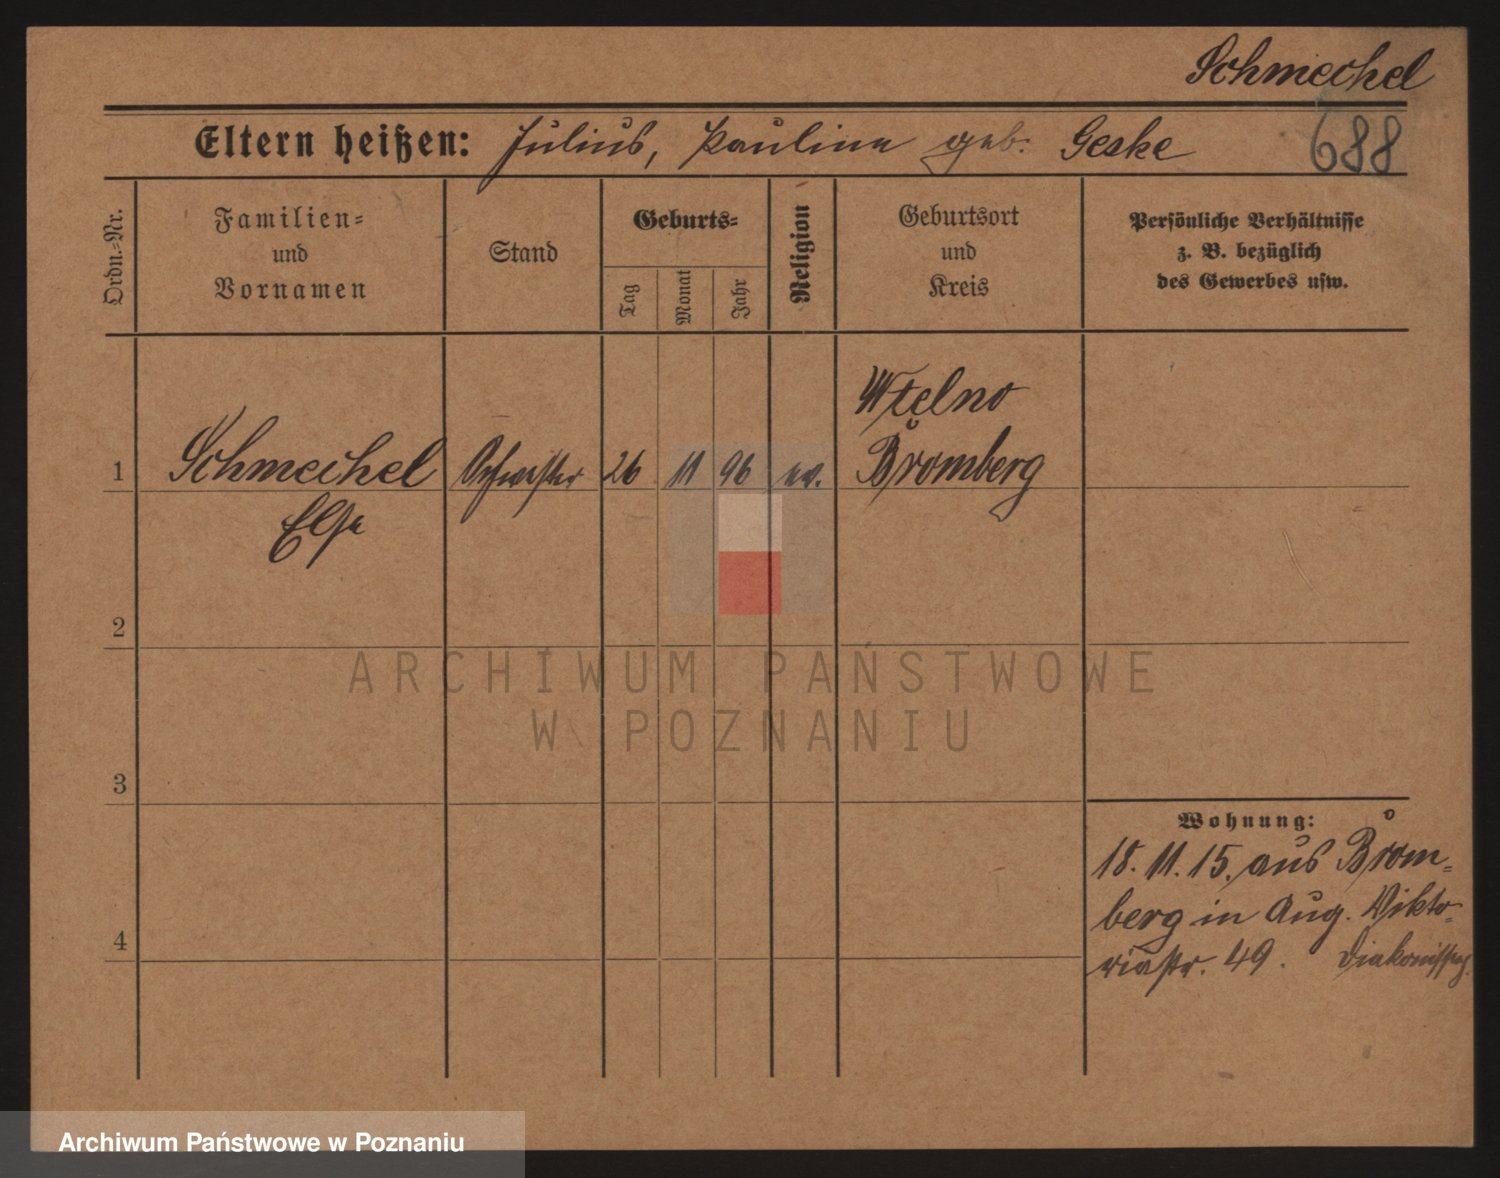 Schmechel
688
Eltern heißen: Julius, Pauline geb. Geske
Ordn.-Nr.
Familien-
und
Vornamen
Stand
Geburts-
Tag
Monat
Jahr
Religion
Geburtsort
und
Kreis
Persönliche Verhältnisse
z. B. bezüglich
des Gewerbes usw.
Wtelno
1 Schmechel Schwester 26 11 96 ev. Bromberg
Else
2
3
4
Wohnung:
18. 11. 15. aus Brom-
berg in Aug. Vikto-
riastr. 49.
ARCHIWUM PAŃSTWOWE
W POZNANIU
Archiwum Państwowe w Poznaniu